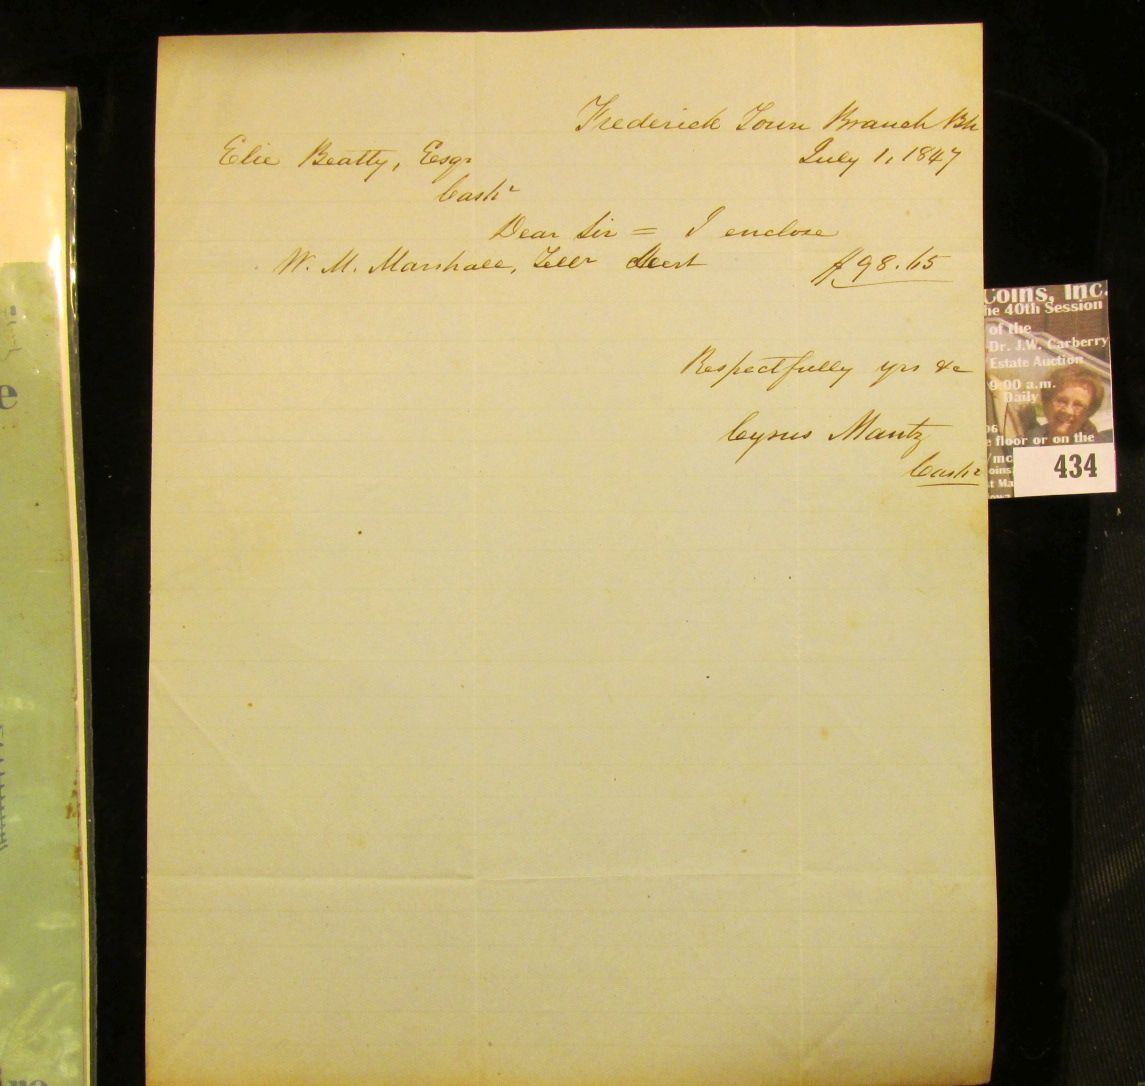 Frederick Town Branch Bk
July 1, 1847
Elie Beatty, Esqr
Cashr
Dear Sir = I enclose
W. M. Marshall, Tellr $98.65
Respectfully yrs &c
Cyrus Mantz
Cashr
Coins, Inc.
he 40th Session
of the
Dr. J.W. Carberry
Estate Auction
9:00 a.m.
Daily
e floor or on the
434